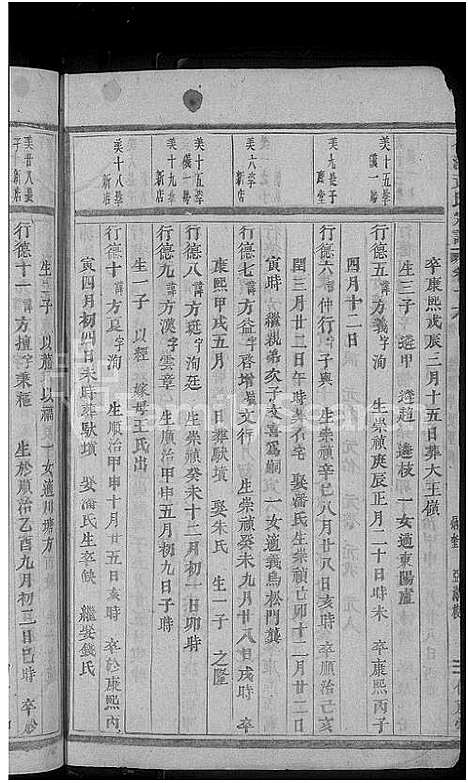 卒康熙戊辰三月十五日葬大王嶺
生三子 遴甲 遴趙 遴枝 一女適東陽盧
美十五孝
儀一
行德五 諱方義字洵 生崇禎庚辰正月二十日時未 卒康熙丙
四月十二日
美九長子
行德六 諱仲行字子興 生崇禎辛巳八月廿八日亥時 卒順治己亥
閏三月廿二日午時葬石宅 娶潘氏生崇禎己卯十二月廿二日
寅時 繼親弟亥子文喜為嗣 一女適義烏松門龔
美六季
新店
行德七 諱方益字啓增號文行 生崇禎癸未九月廿八日戌時 卒
康熙甲戌五月 日葬馱墳 娶朱氏 生一子 之隆
美十五季
儀一
行德八 諱方珽字洵廷 生崇禎癸未十二月初一日卯時
美十九季
新店
行德九 諱方漢字雲章 生順治甲申五月初九日子時
生一子 以程 嫁母王氏出
美十八季
新店
行德十 諱方夏字洵 生順治甲申十月廿五日亥時 卒於康熙丙
寅四月初四日未時葬馱墳 娶潘氏生卒缺 繼娶錢氏
生二子 以福 一女適川塘方
美廿八長
子 新店
行德十一 諱方擅字秉樞 生於順治乙酉九月初二日巳時 卒於